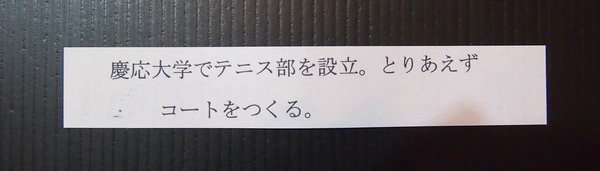 慶応大学でテニス部を設立。とりあえず
コートをつくる。